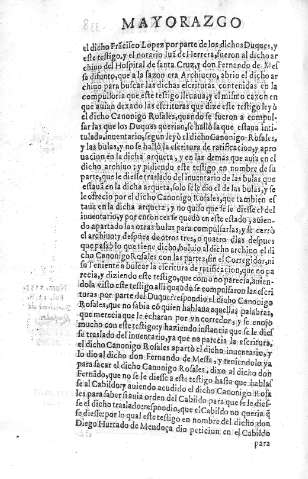 MAYORAZGO
el dicho Frãcisco Lopez por parte de los dichos Duques, y
este testigo, y el notario Juã de Herrera, fueron al dicho ar
chiuo del Hospital de santa Cruz, y don Fernando de Mess
so difunto, que a la sazon era Archiuero, abrio el dicho ar
chiuo para buscar las dichas escrituras contenidas en la
compulsoria que este testigo lleuaua, y el mismo caxon en
que auian dexado las escrituras que dize este testigo leyò
el dicho Canonigo Rosales, quando se fueron a compul-
sar las que los Duques querian, se hallò la que estaua inti-
tulada, inuentario, segun leyò el dicho Canonigo Rosales,
y las bulas, y no se hallò la escritura de ratificacion, y apro
uacion en la dicha arqueta, y en las demas que auia en el
dicho archiuo; y pidiendo este testigo en nombre de su
parte, que le diesse traslado del inuentario de las bulas que
estauã en la dicha arqueta, solo se le dio el de las bulas, y se
le ofrecio por el dicho Canonigo Rosales, que tambien es
taua en la dicha arqueta, y no quiso que se le diesse el del
inuentario, y por entonces se quedò en este estado, auien-
do apartado las otras bulas para compulsarlas, y se cerrò
el archiuo: y despues de otros tres, o quatro dias despues
que passò lo que tiene dicho, boluio al dicho archiuo el di
cho Canonigo Rosales con las partes, sin el Corregidor, ni
su Teniente a buscar la escritura de ratificacion, que no pa
recia, y diziendo este testigo, que como no parecia, auien-
dola visto este testigo alli quando se compulsaron las escri
turas por parte del Duque? respondio el dicho Canonigo
Rosales, que no sabia cõ quien hablaua aquellas palabras,
que merecia que le echaran por vn corredor, y se enojò
mucho con este testigo: y haziendo instancia que se le dies
se traslado del inuentario, ya que no parecia la escritura,
el dicho Canonigo Rosales apartò el dicho inuentario, y
lo dio al dicho don Fernando de Messe, y teniendolo ya
para sacar el dicho Canonigo Rosales, dixo al dicho don
Fernãdo, que no se le diesse a este testigo hasta que hablas
se al Cabildo: y auiendo acudido el dicho Canonigo Rosa
les para saber si auia orden del Cabildo para que se le dies-
se el dicho traslado: respondio, que el Cabildo no queria q̃
se diesse: por lo qual este testigo en nombre del dicho don
Diego Hurtado de Mendoça dio peticion en el Cabildo
para